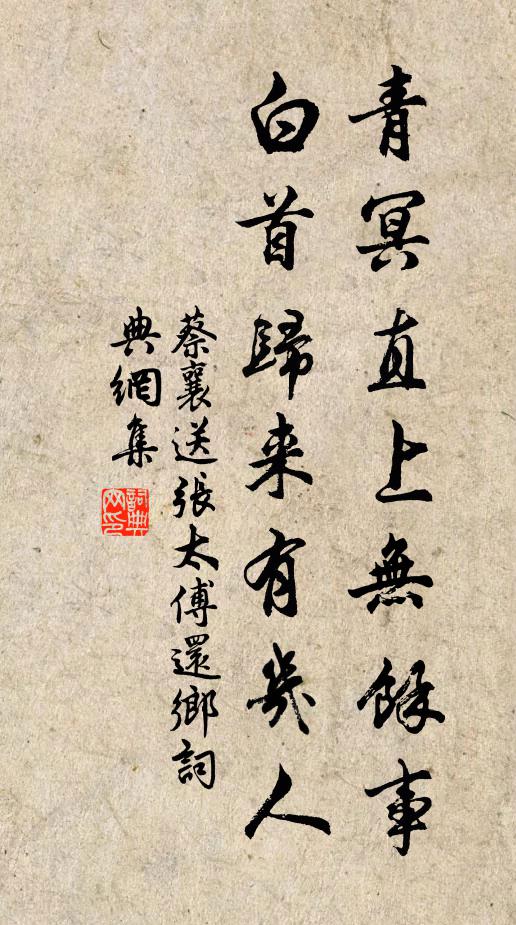 青冥直上無餘事
白首歸来有幾人
蔡襄送張太傅還鄉詞
典網集
詞典网印